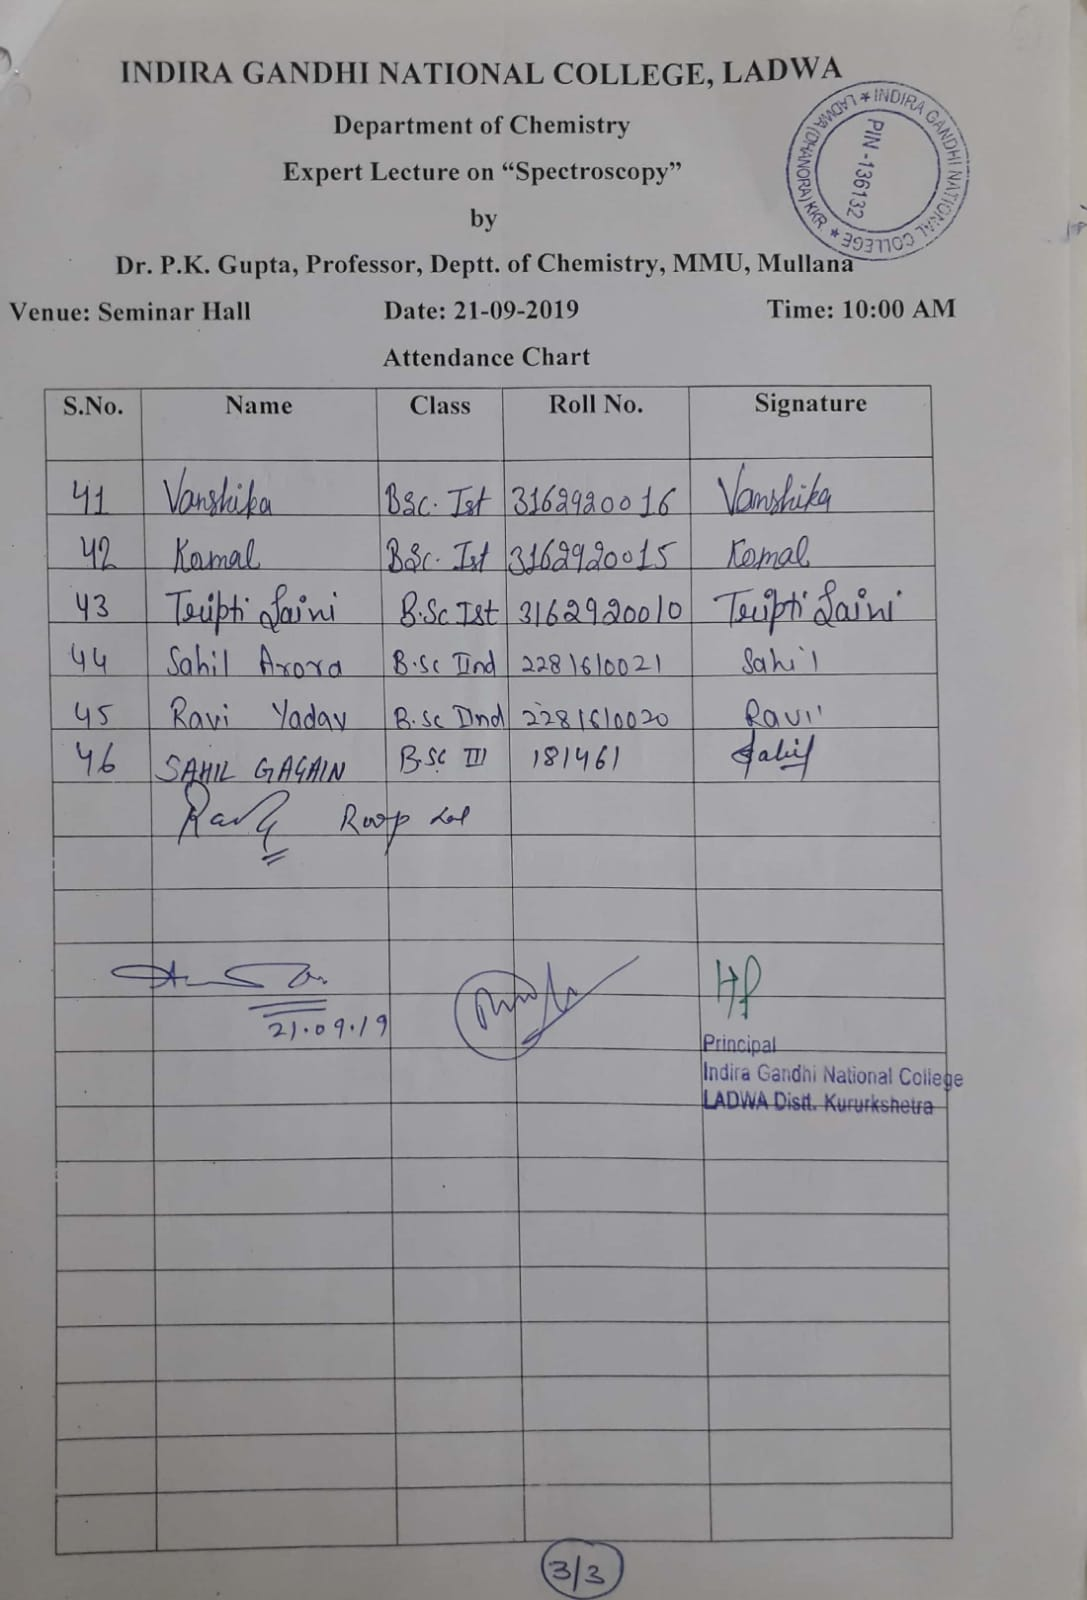 INDIRA GANDHI NATIONAL COLLEGE, LADWA
★ INDIRA GANDHI NATIONAL COLLEGE ★ LADWA (DHANORA) KKR.
PIN -136132
Department of Chemistry
Expert Lecture on “Spectroscopy”
by
Dr. P.K. Gupta, Professor, Deptt. of Chemistry, MMU, Mullana
Venue: Seminar Hall Date: 21-09-2019 Time: 10:00 AM
Attendance Chart
S.No. Name Class Roll No. Signature
41 Vanshika BSc. Ist 3162920016 Vanshika
42 Komal BSc. Ist 3162920015 Komal
43 Tripti Saini B.Sc Ist 3162920010 Tripti Saini
44 Sahil Arora B.Sc IInd 2281610021 Sahil
45 Ravi Yadav B.Sc IInd 2281610020 Ravi
46 SAHIL GAGAIN B.SC III 181461 Sahil
Roop Lal
21.09.19
Principal
Indira Gandhi National College
LADWA Distt. Kururkshetra
3/3